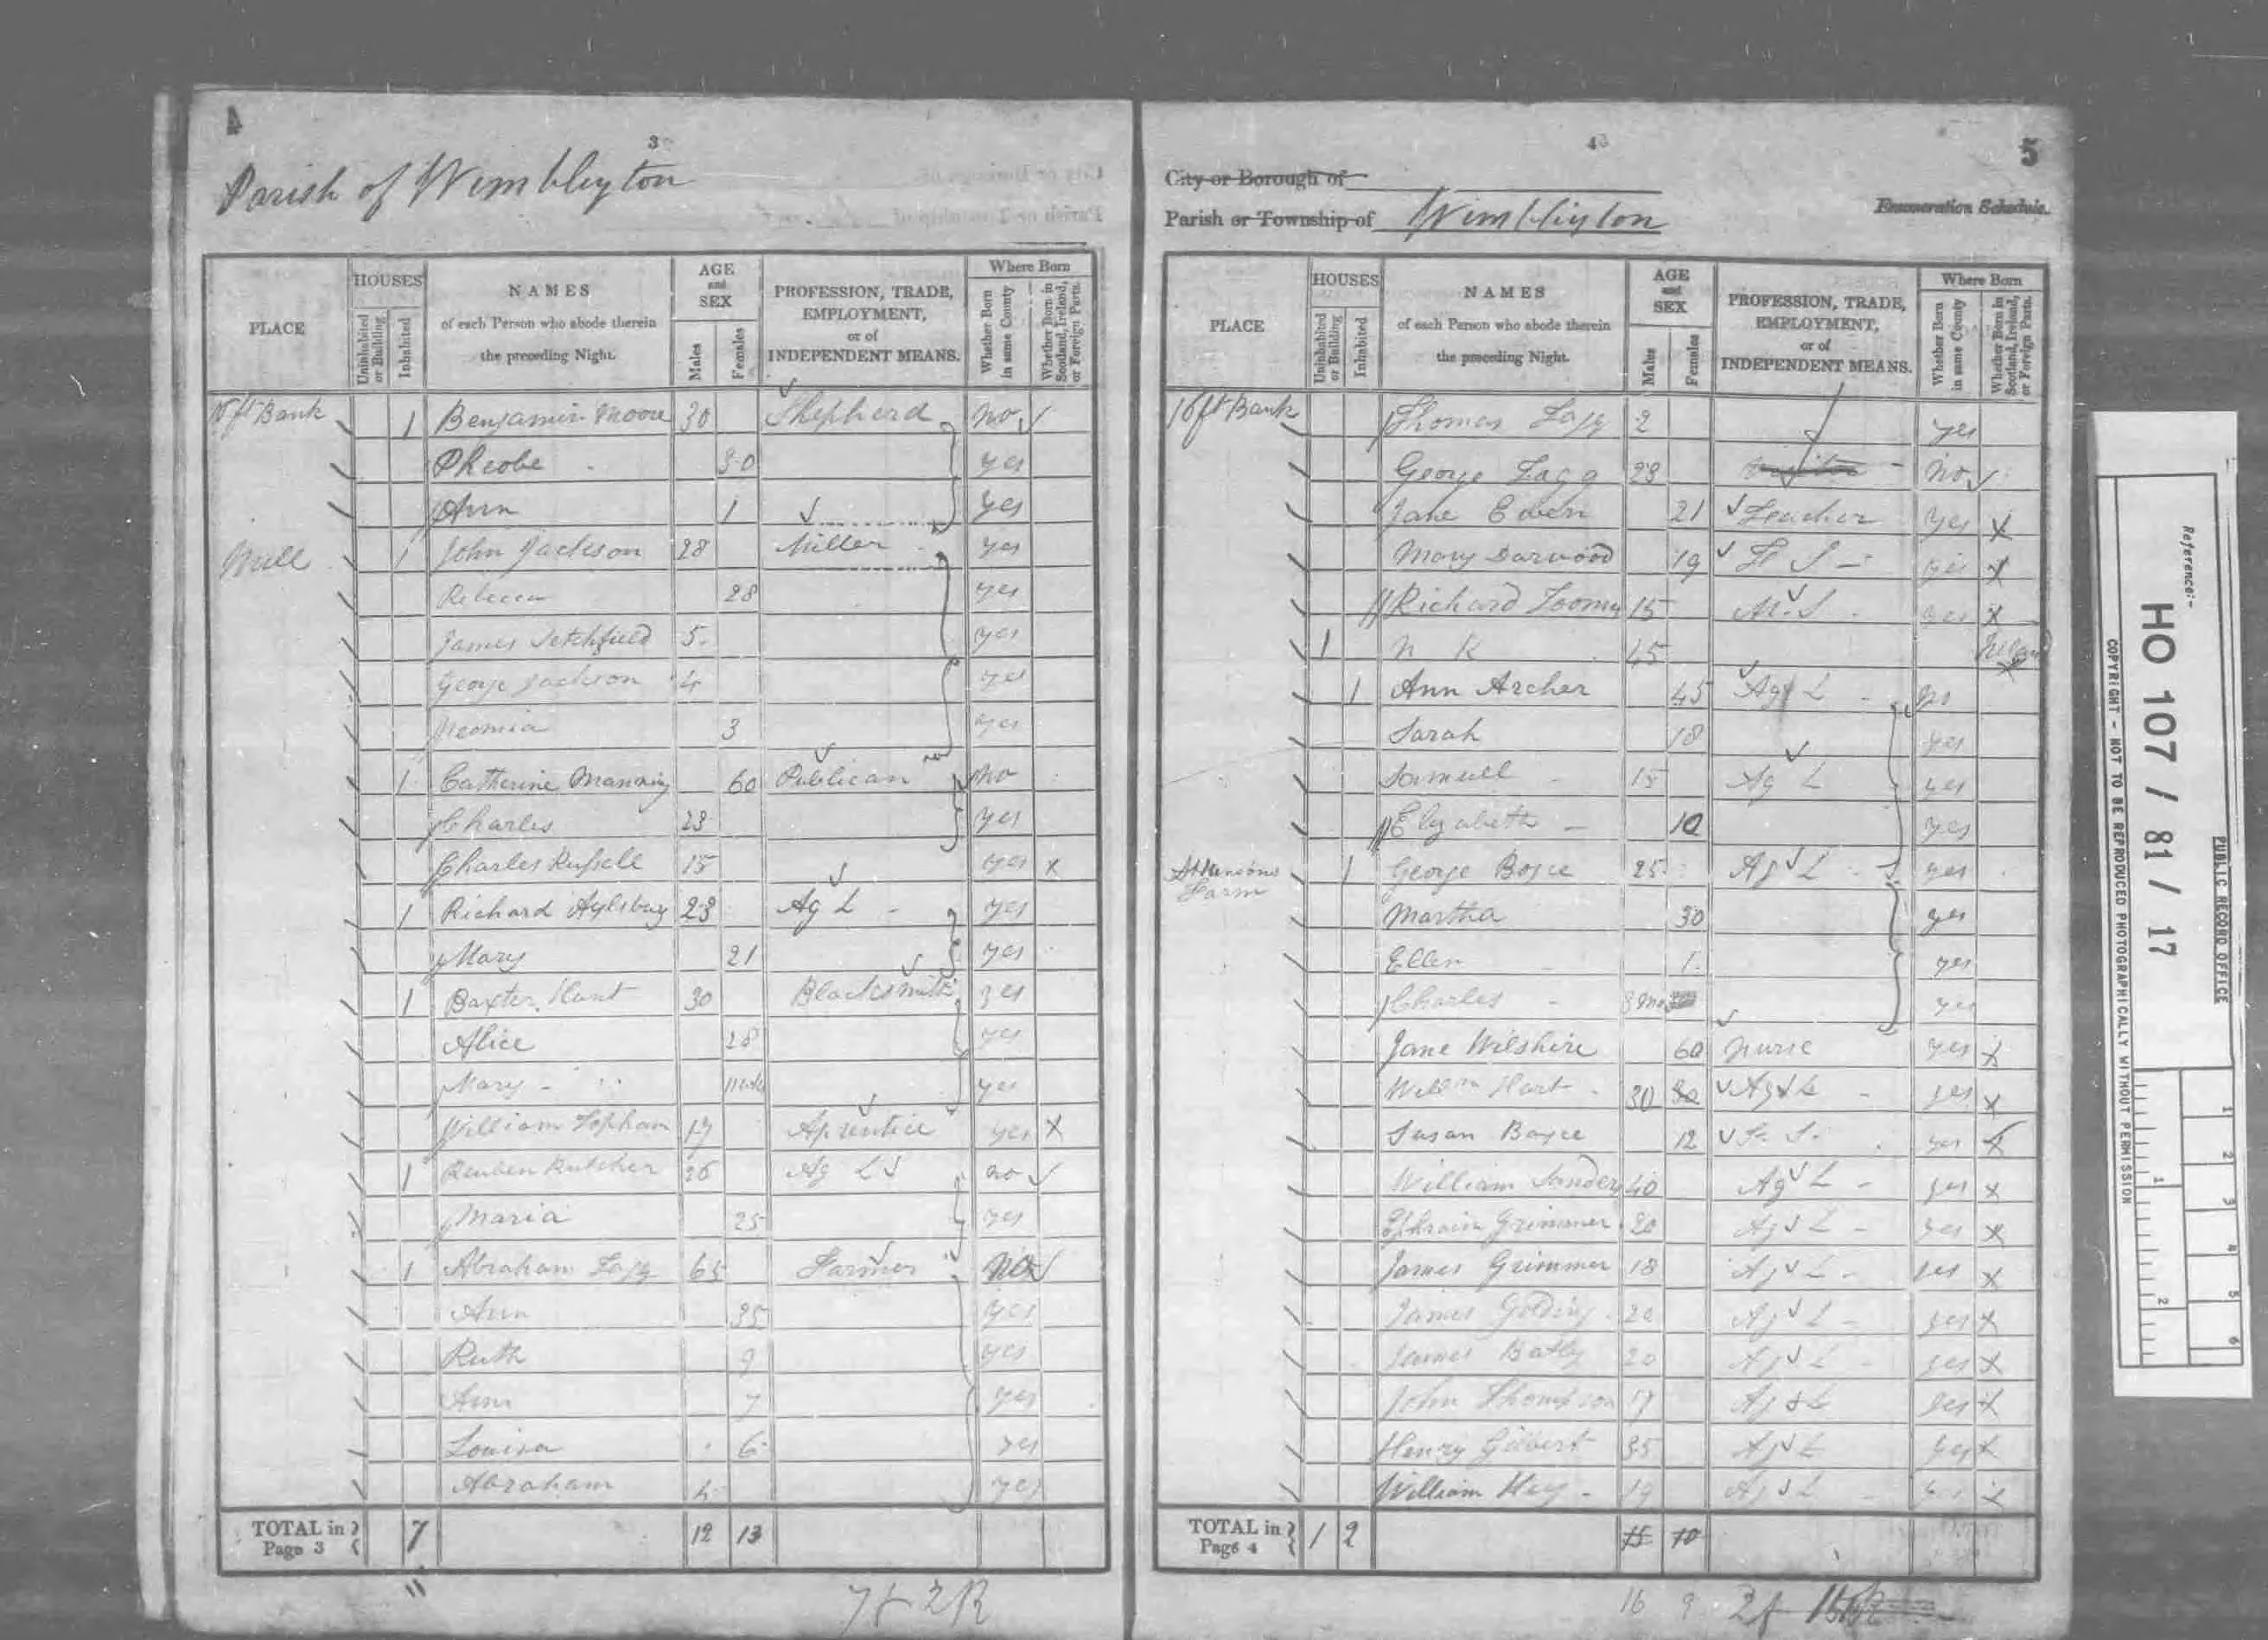 4
3
Parish of Wimblington
PLACE HOUSES NAMES of each Person who abode therein the preceding Night. AGE and SEX PROFESSION, TRADE, EMPLOYMENT, or of INDEPENDENT MEANS. Where Born
Uninhabited or Building Inhabited Males Females Whether Born in same County Whether Born in Scotland, Ireland, or Foreign Parts.
ft Bank 1 Benjamin Moore 30 Shepherd no
Pheobe 30 yes
Ann 1 yes
Mill 1 John Jackson 28 Miller yes
Rebecca 28 yes
James Setchfield 5 yes
George Jackson 4 yes
Neomia 3 yes
1 Catherine Manning 60 Publican no
Charles 23 yes
Charles Russell 15 yes x
1 Richard Aylsbury 23 Ag L yes
Mary 21 yes
1 Baxter Hunt 30 Blacksmith yes
Alice 28 yes
Mary yes
William Topham 17 Aprentice yes x
1 Reuben Butcher 26 Ag L no
Maria 25 yes
1 Abraham Fagg 65 Farmer no
Ann 35 yes
Ruth 9 yes
Ann 7 yes
Louisa 6 yes
Abraham 4 yes
TOTAL in Page 3 7 12 13
4
5
City or Borough of
Parish or Township of Wimblington
Enumeration Schedule.
PLACE HOUSES NAMES of each Person who abode therein the preceding Night. AGE and SEX PROFESSION, TRADE, EMPLOYMENT, or of INDEPENDENT MEANS. Where Born
Uninhabited or Building Inhabited Males Females Whether Born in same County Whether Born in Scotland, Ireland, or Foreign Parts.
16 ft Bank Thomas Fagg 2 yes
George Fagg 23 no
Jane Ewen 21 Teacher yes x
Mary Darwood 19 F S yes x
Richard 15 M S yes x
1 N K 45 Ireland x
1 Ann Archer 45 Ag L no
Sarah 18 yes
Samuell 15 Ag L yes
Elyzabeth 10 yes
Farm 1 George Boyce 25 Ag L yes
Martha 30 yes
Ellen 1 yes
Charles 8 mo yes
Jane Wilshire 60 Nurse yes x
Willm Hart 30 30 Ag L yes x
Susan Boyce 12 F. S. yes x
William Sanders 40 Ag L yes x
Ephraim Grimmer 20 Ag L yes x
James Grimmer 18 Ag L yes x
James Golding 20 Ag L yes x
James Batly 20 Ag L yes x
John Thompson 17 Ag L yes x
Henry Gilbert 35 Ag L yes x
William Hay 19 Ag L yes x
TOTAL in Page 4 1 2 15 10
16 9
Reference:-
HO 107 / 81 / 17
PUBLIC RECORD OFFICE
COPYRIGHT - NOT TO BE REPRODUCED PHOTOGRAPHICALLY WITHOUT PERMISSION
1 2 3 4 5 6
1 2